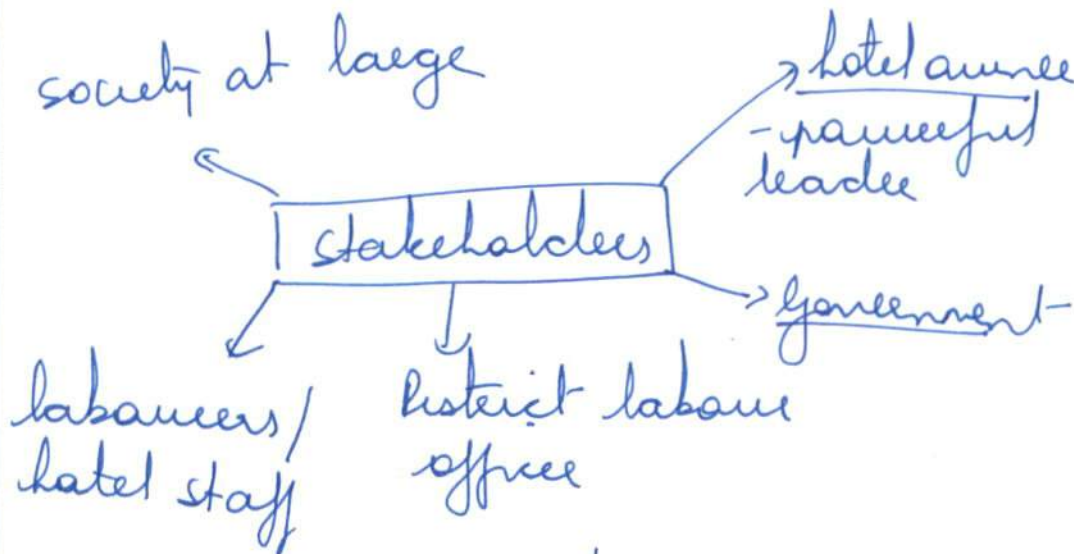 society at large
hotel owner
- powerful
leader
stakeholders
Government
labourers/
hotel staff
District labour
officer